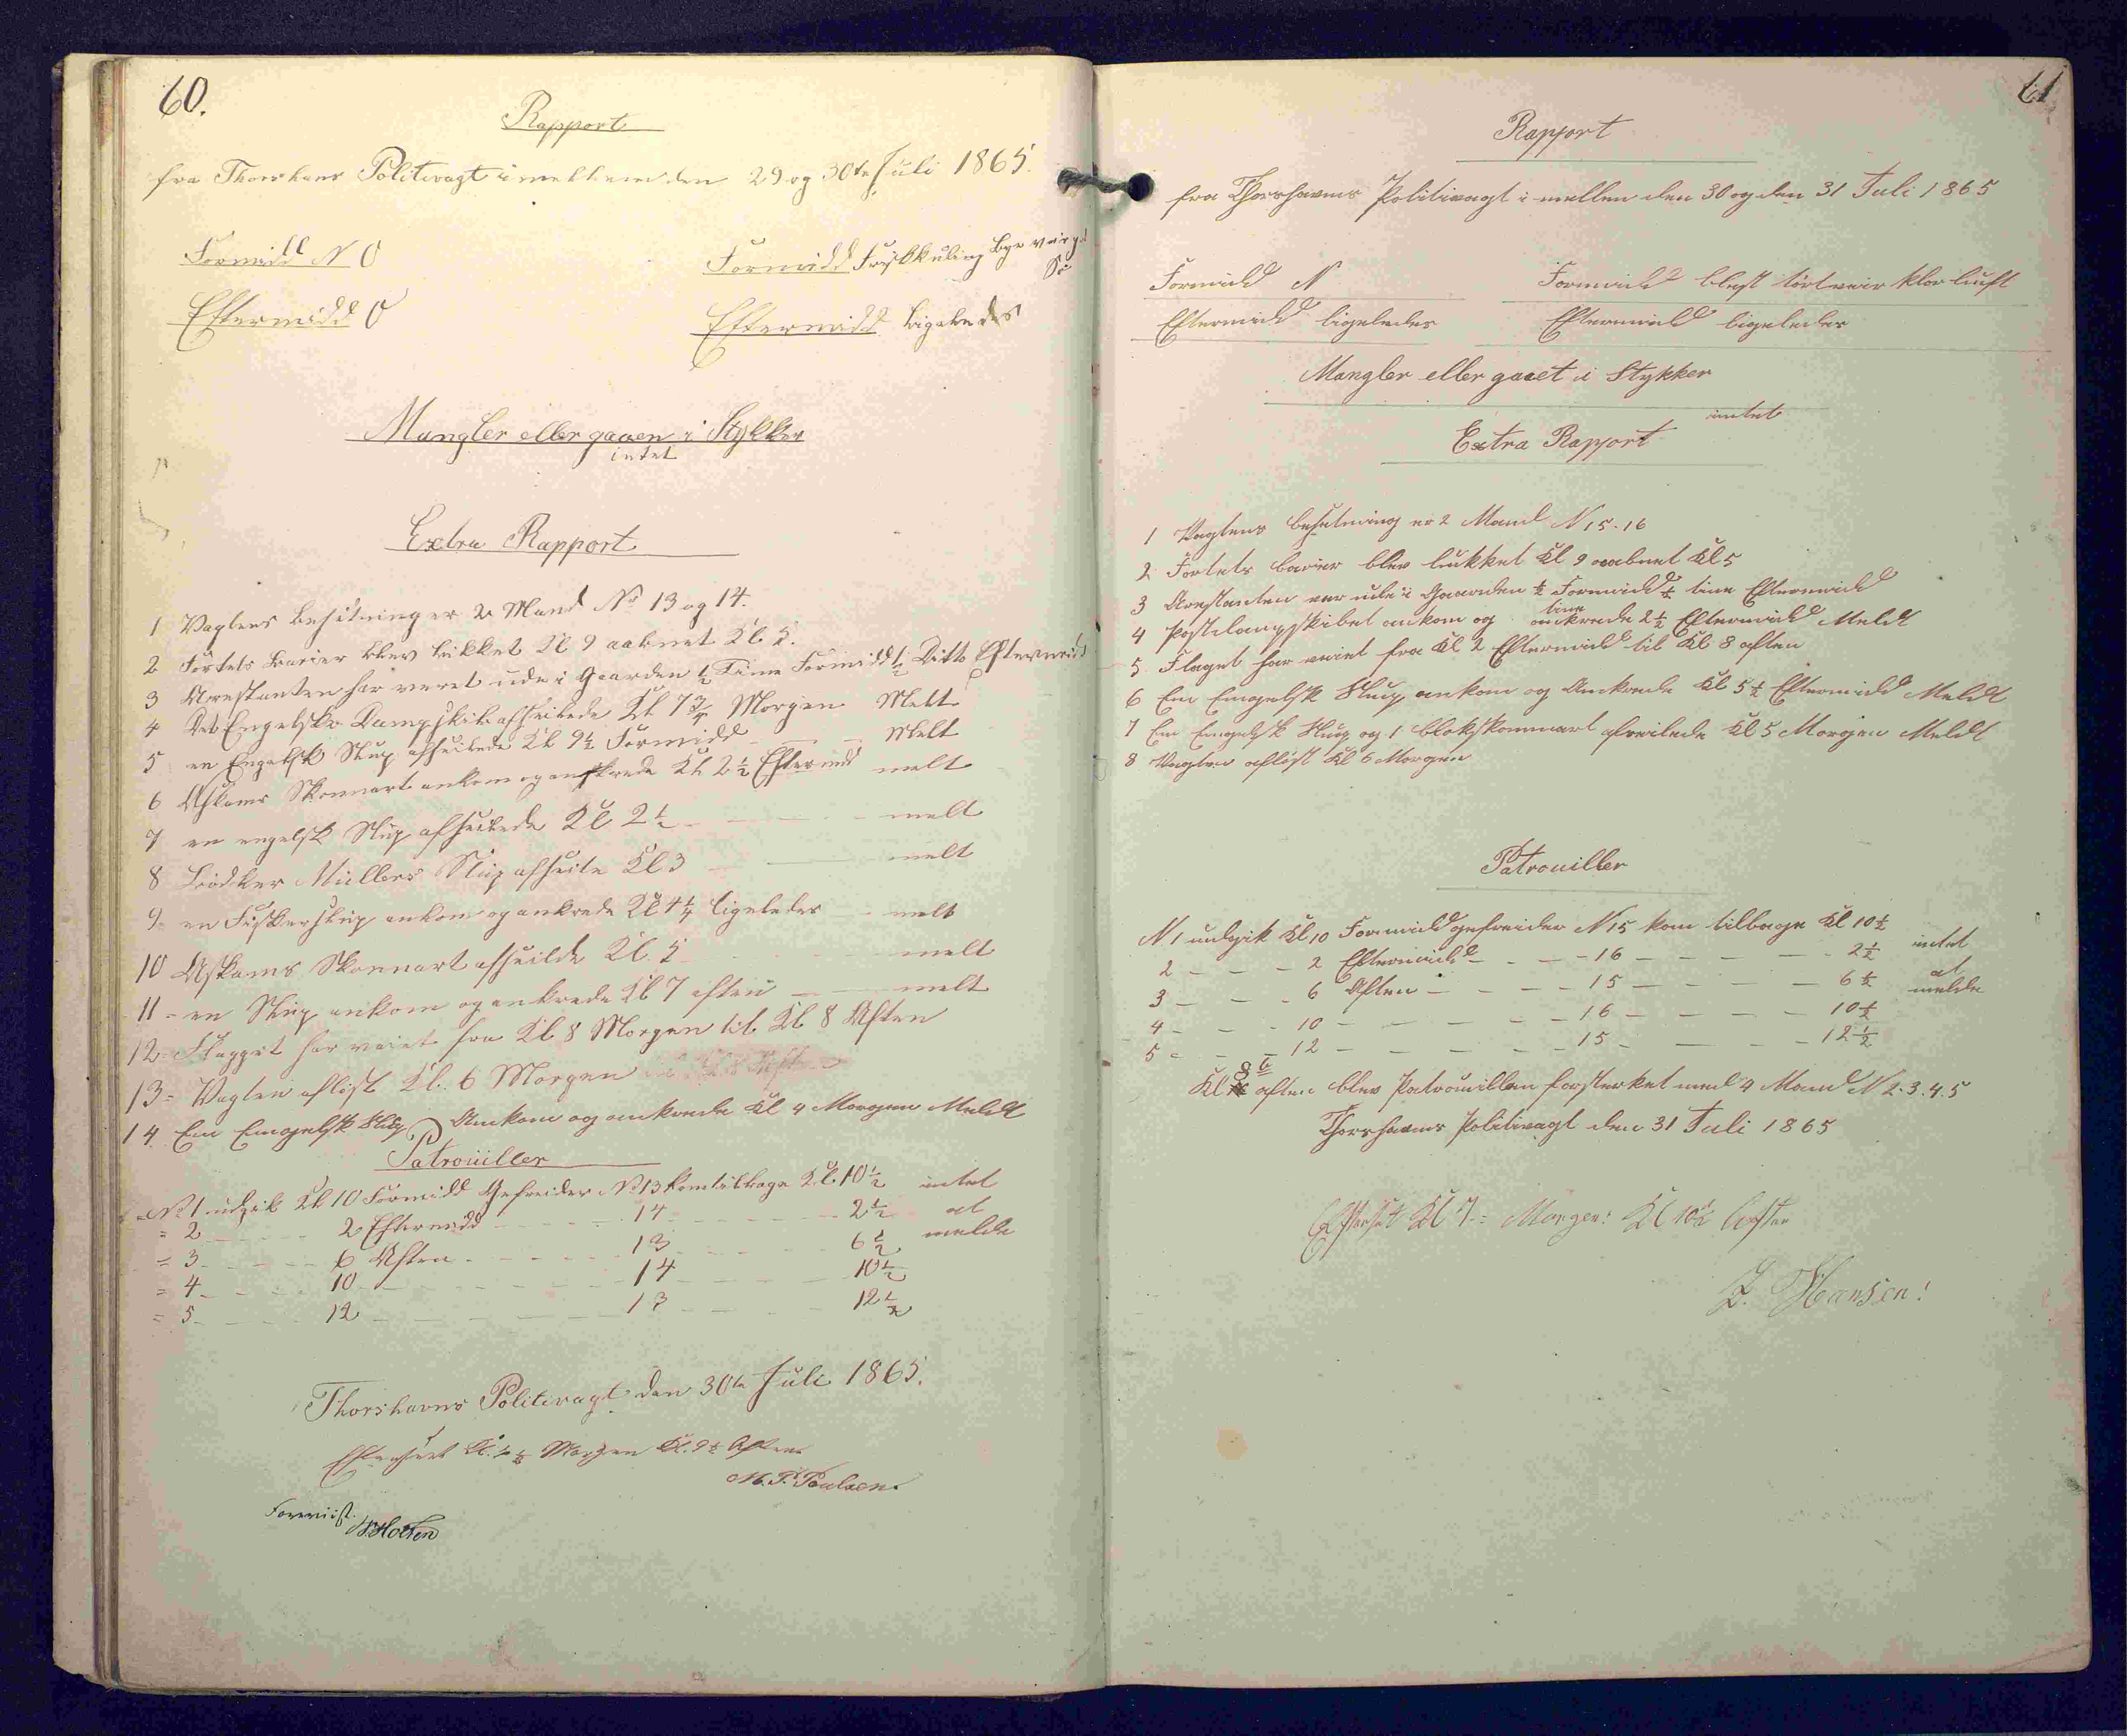 60.
Rapport
fra Thorshavns Politivagt imellem den 29 og 30te Juli 1865.
Formidd N O
Formidd Frisk Kuling
Eftermidd O
Eftermidd Ligeledes
Mangler eller gaaen i Stykker
intet
Extra Rapport
1 Vagtens Besætning er 2 Mand No 13 og 14.
2 Fortets Barier blev lukket Kl 9 aabnet Kl. 5.
3 Arestanten har været ude i Gaarden ½ Time Formidd ½ Ditto Eftermidd
4 Det Engelske Dampskib afseilede Kl 7¾ Morgen Melt
5 en Engelsk Slup afseilede Kl 9½ Formidd melt
6 Askams Skonnart ankom og ankrede Kl 2½ Eftermidd melt
7 en engelsk Slup afseilede Kl 2½ melt
8 Bødker Müllers Slup afseilte Kl 3 melt
9 en Fiskerslup ankom og ankrede Kl 4¼ ligeledes melt
10 Askams Skonnart afseilde Kl. 5 melt
11 = en Slup ankom og ankrede Kl 7 aften melt
12 = Flagget har vaiet fra Kl 8 Morgen til Kl 8 Aften
13 = Vagten afløst Kl. 6 Morgen
14. En Engelsk Slup Ankom og ankrede Kl 4 Morgen Meldt
Patrouiller
No 1 udgik Kl 10 Formidd Gefreider No 13 kom tilbage Kl. 10½ intet
= 2 2 Eftermidd 14 2½ at
= 3 6 Aften 13 6½ melde
= 4 10 14 10½
= 5 12 13 12½
Thorshavns Politivagt den 30te Juli 1865.
Efterseet Kl. Morgen Kl. 9½ Aften
M. P. Poulsen.
Foreviist.
61
Rapport
fra Thorshavns Politivagt i mellem den 30 og den 31 Juli 1865
Formidd N
Formidd blæst tørt veir klar luft
Eftermidd ligeledes
Eftermidd ligeledes
Mangler eller gaaet i Stykker
intet
Extra Rapport
1 Vagtens besætning er 2 Mand N 15-16
2 Fortets barier blev lukket Kl 9 aabnet Kl 5
3 Arestanten var ude i Gaarden ½ Formidd ½ time Eftermidd
4 Postdampskibet ankom og ankrede 2½ Eftermidd Meldt
5 Flaget har vaiet fra Kl 2 Eftermidd til Kl 8 aften
6 En Engelsk Slup ankom og Ankrede Kl 5½ Eftermidd Meldt
7 En Engelsk Slup og 1 Skonnart afseilede Kl 5 Morgen Meldt
8 Vagten afløst Kl 6 Morgen
Patrouiller
N 1 undgik Kl 10 Formidd gefreider N 15 kom tilbage Kl 10½ intet
2 2 Eftermidd 16 2½ at
3 6 Aften 15 6½ melde
4 10 16 10½
5 12 15 12½
Kl 8 aften blev Patrouillen forsterket med 4 Mand N 2.3.4.5
Thorshavns Politivagt den 31 Juli 1865
Efterseet Kl 7 = Morgen: Kl 10½ Aften
Z. Hansen!